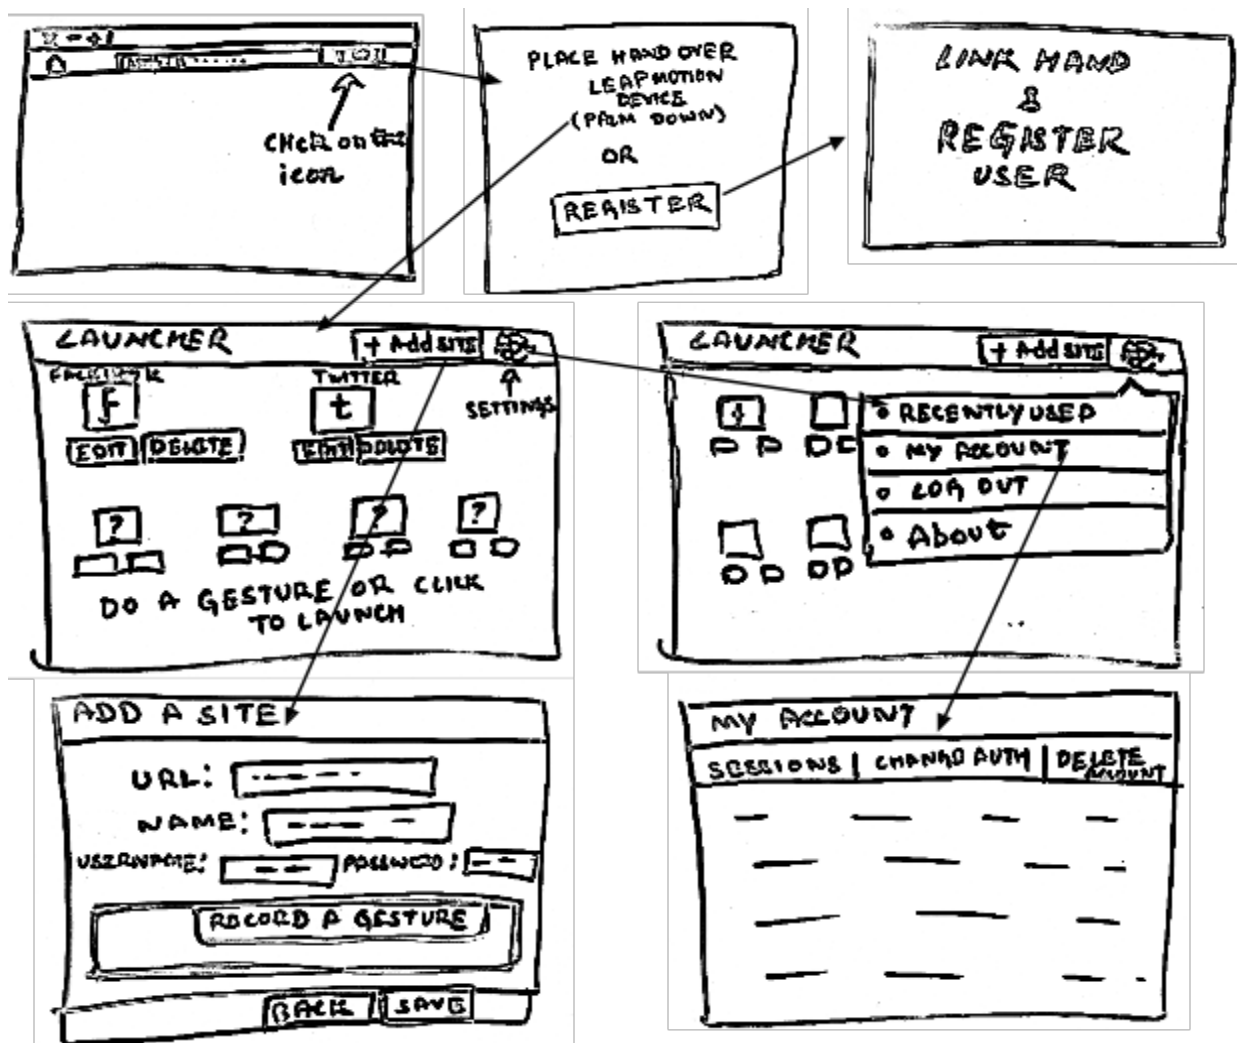 Click on the
icon
PLACE HAND OVER
LEAP MOTION
DEVICE
(PALM DOWN)
OR
REGISTER
LINK HAND
&
REGISTER
USER
LAUNCHER
+ Add SITE
FACEBOOK
TWITTER
SETTINGS
f
t
EDIT DELETE
EDIT DELETE
? ? ? ?
DO A GESTURE OR CLICK
TO LAUNCH
LAUNCHER
+ Add SITE
RECENTLY USED
MY ACCOUNT
LOG OUT
About
ADD A SITE
URL:
NAME:
USERNAME: PASSWORD:
RECORD A GESTURE
BACK SAVE
MY ACCOUNT
SESSIONS | CHANGE AUTH | DELETE
ACCOUNT